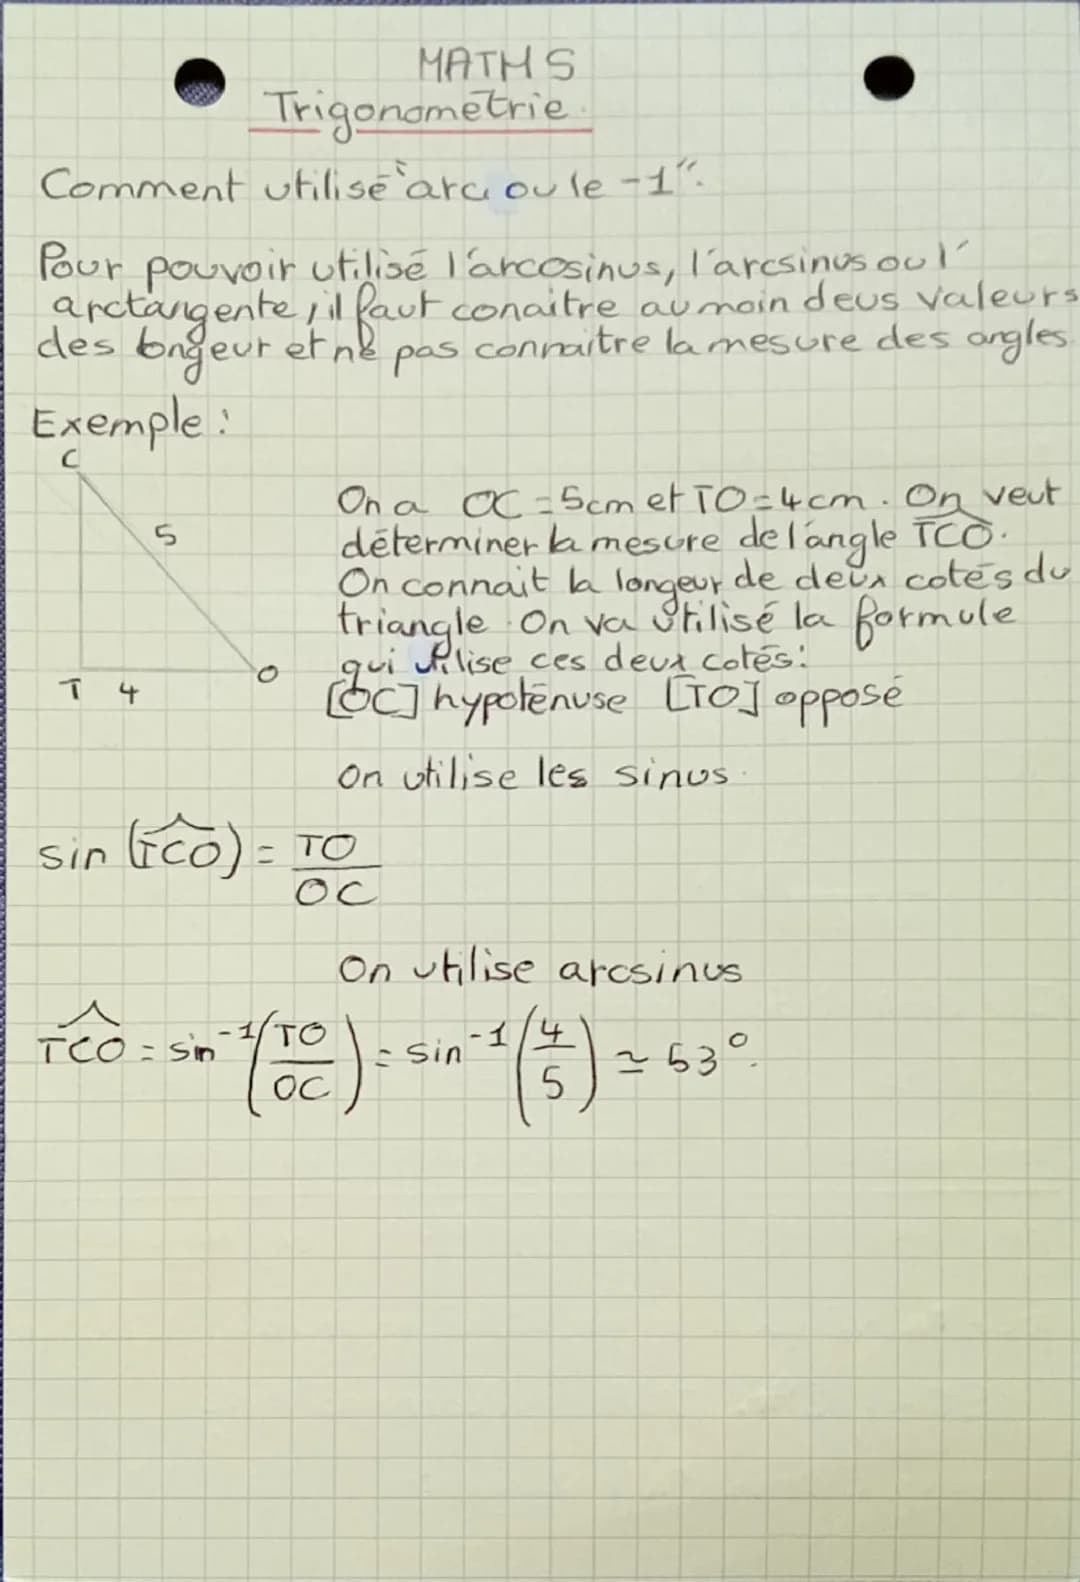 MATHS
Trigonométrie.
Comment utilisé "arc ou le -1".
Pour pouvoir utilisé l'arcosinus, l'arcsinus ou l'
arctangente, il faut conaitre au moin deus valeurs
des longeur et ne pas connaitre la mesure des angles.
Exemple :
C
5
T 4
O
On a OC = 5cm et TO = 4cm. On veut
déterminer la mesure de l'angle TCO.
On connait la longeur de deux cotés du
triangle. On va utilisé la formule
qui utilise ces deux cotés:
[OC] hypoténuse [TO] opposé
On utilise les sinus.
sin (TCO) = TO/OC
On utilise arcsinus
TCO = sin⁻¹(TO/OC) = sin⁻¹(4/5) ≃ 53°.